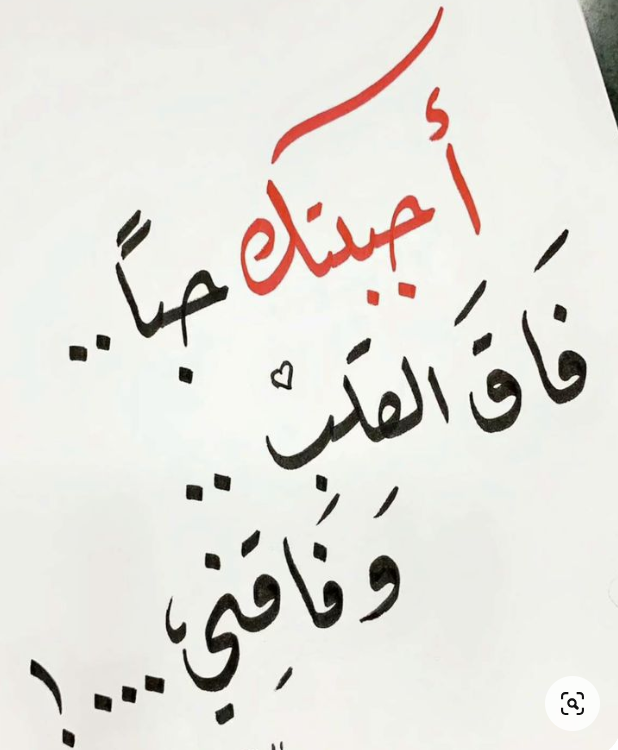 أحببتك حباً..
فَاقَ القلب..
وَفَاقَني...!